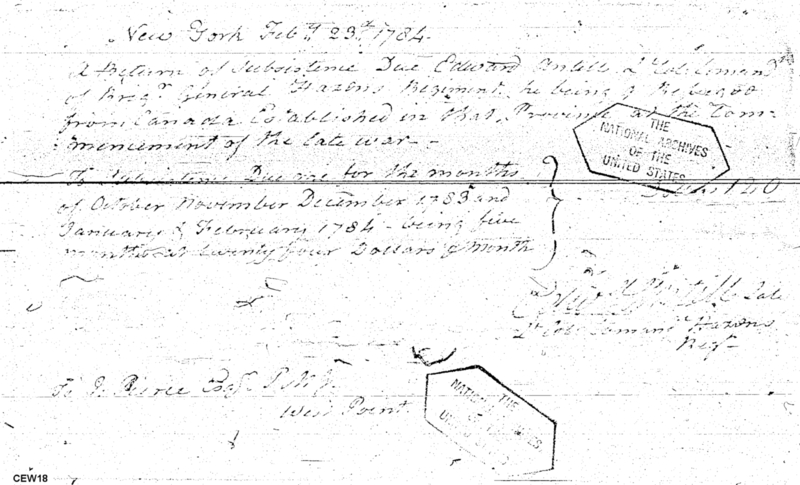 New York Feb.ry 23.d 1784
A Return of Subsistence Due Edward Antill Lt Col. Comand.t
of Brig.r General Hazens Regiment he being a Refugee
from Canada Established in that Province at the Com-
mencement of the late war -
To Subsistence Due me for the months
of October November December 1783 and
January & February 1784 - being five
months at twenty four Dollars p month
120
Lt Col. Comand.t Hazens
Reg.t
To J. Pierce Esq.r P.M.G.
West Point
THE
NATIONAL ARCHIVES
OF THE
UNITED STATES
THE
NATIONAL
UNITED
CEW18